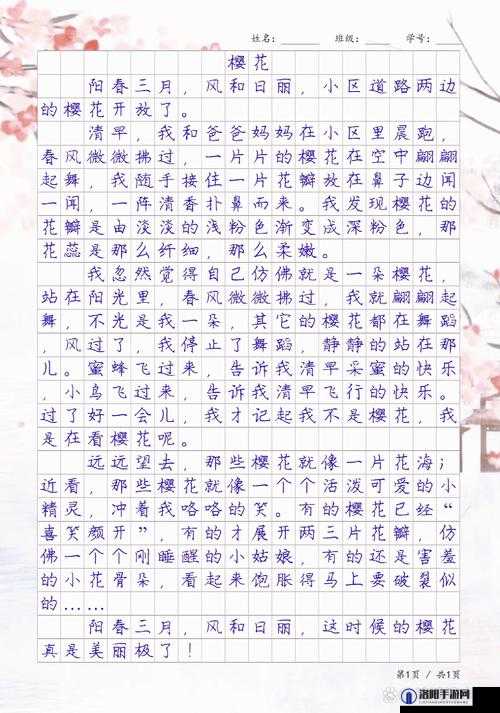 姓名：______ 班级：____ 学号：____
樱花
阳春三月，风和日丽，小区道路两边
的樱花开放了。
清早，我和爸爸妈妈在小区里晨跑，
春风微微拂过，一片片的樱花在空中翩翩
起舞，我随手接住一片花瓣放在鼻子边闻
一闻，一阵清香扑鼻而来。我发现樱花的
花瓣是由淡淡的浅粉色渐变成深粉色，那
花蕊是那么纤细，那么柔嫩。
我忽然觉得自己仿佛就是一朵樱花，
站在阳光里，春风微微拂过，我就翩翩起
舞，不光是我一朵，其它的樱花都在舞蹈
，风过了，我停止了舞蹈，静静的站在那
儿。蜜蜂飞过来，告诉我清早采蜜的快乐
，小鸟飞过来，告诉我清早飞行的快乐。
过了好一会儿，我才记起我不是樱花，我
是在看樱花呢。
远远望去，那些樱花就像一片花海；
近看，那些樱花就像一个个活泼可爱的小
精灵，冲着我咯咯的笑。有的樱花已经“
喜笑颜开”，有的才展开两三片花瓣，仿
佛一个个刚睡醒的小姑娘，有的还是害羞
的小花骨朵，看起来饱胀得马上要破裂似
的……
阳春三月，风和日丽，这时候的樱花
真是美丽极了！
第1页 / 共1页
洛阳手游网